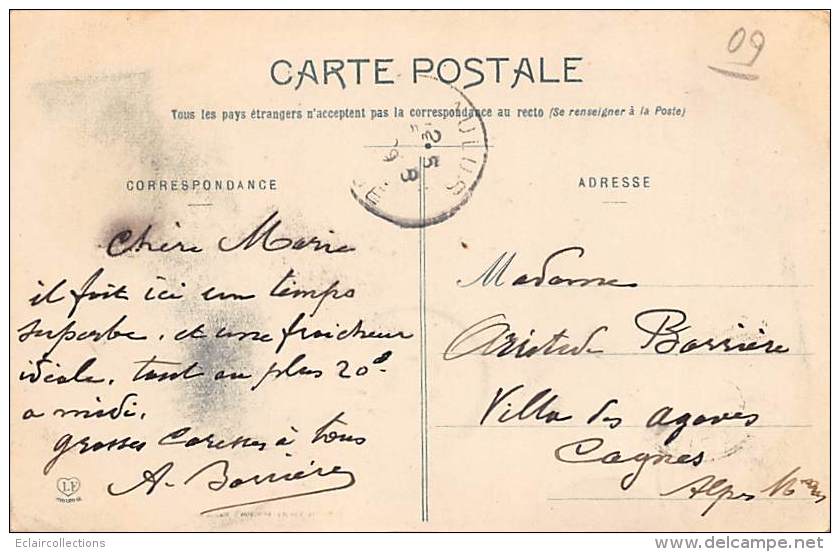 09
CARTE POSTALE
Tous les pays étrangers n'acceptent pas la correspondance au recto (Se renseigner à la Poste)
CORRESPONDANCE
ADRESSE
Chère Marie
il fait ici un temps
superbe, et une fraicheur
idéale, tout au plus 20°
a midi.
grosses caresses à tous
A. Barrière
Madame
Aristide Barrière
Villa des agaves
Cagnes
Alpes Mmes
ULUS
25
8
09
LF
Eclaircollections
delcampe.net